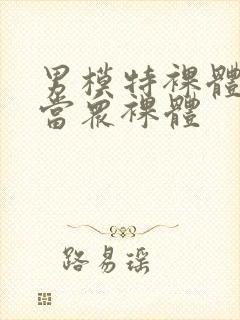 男模特裸體
當眾裸體
路易瑶